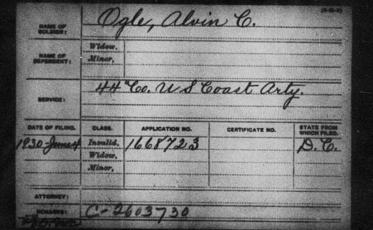 NAME OF SOLDIER: Ogle, Alvin C.
NAME OF DEPENDENT: Widow,
Minor,
SERVICE: 44 Co. U S Coast Arty.
DATE OF FILING. CLASS. APPLICATION NO. CERTIFICATE NO. STATE FROM WHICH FILED.
1930-June 4 Invalid, 1668723 D. C.
Widow,
Minor,
ATTORNEY:
REMARKS: C-2603730